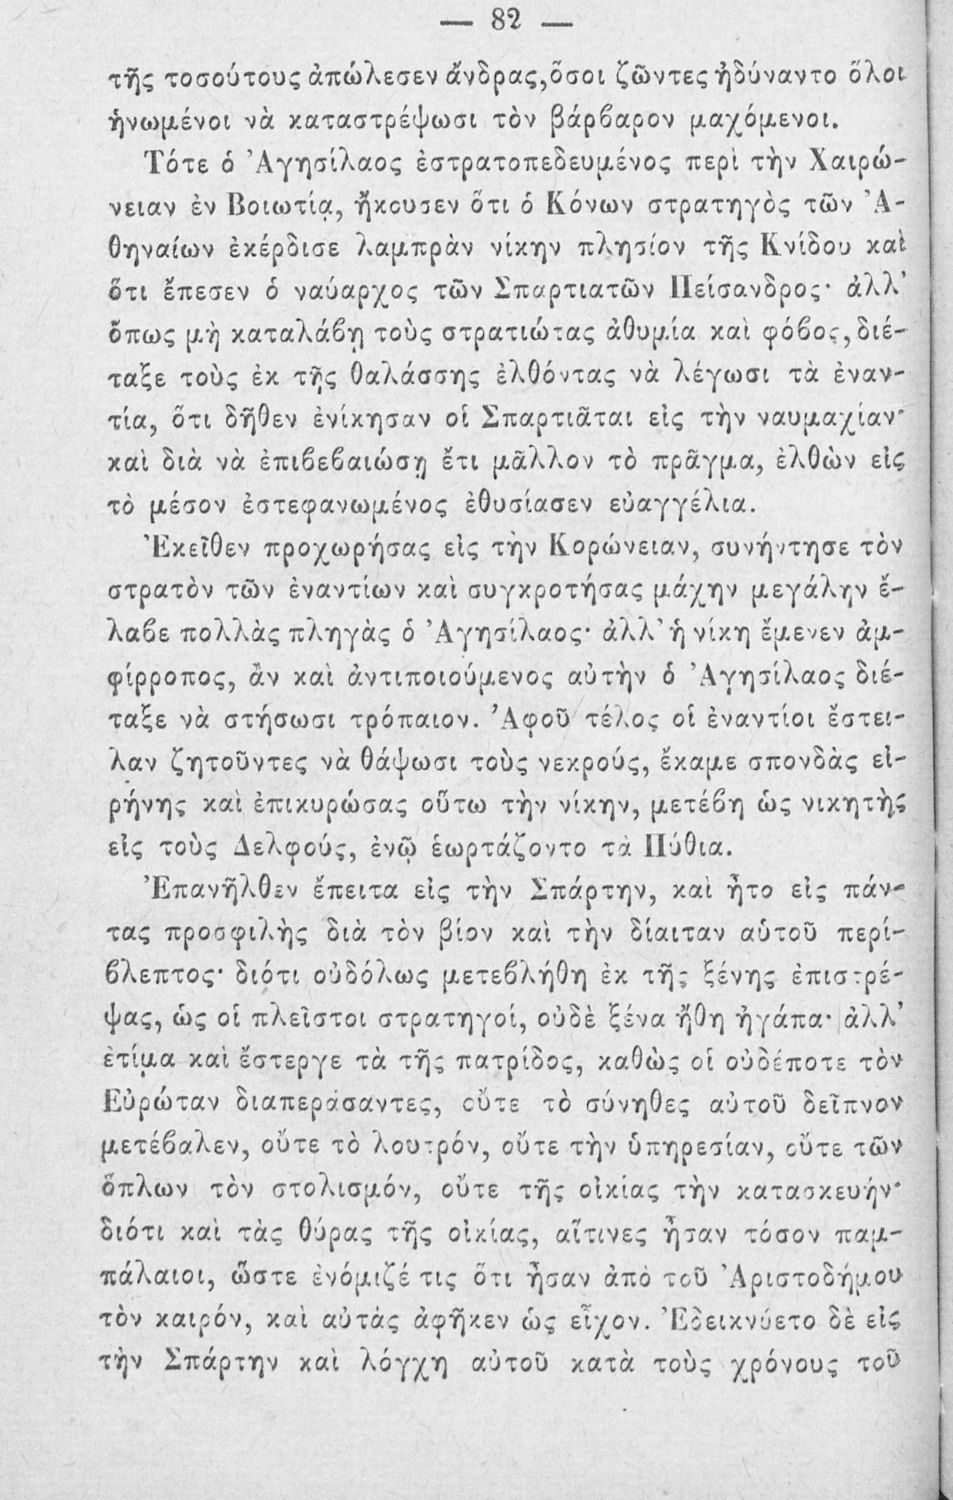 — 82 —
τῆς τοσούτους ἀπώλεσεν ἄνδρας, ὅσοι ζῶντες ἠδύναντο ὅλοι
ἡνωμένοι νὰ καταστρέψωσι τὸν βάρβαρον μαχόμενοι.
Τότε ὁ Ἀγησίλαος ἐστρατοπεδευμένος περὶ τὴν Χαιρώ-
νειαν ἐν Βοιωτίᾳ, ἤκουσεν ὅτι ὁ Κόνων στρατηγὸς τῶν Ἀ-
θηναίων ἐκέρδισε λαμπρὰν νίκην πλησίον τῆς Κνίδου καὶ
ὅτι ἔπεσεν ὁ ναύαρχος τῶν Σπαρτιατῶν Πείσανδρος· ἀλλ'
ὅπως μὴ καταλάβῃ τοὺς στρατιώτας ἀθυμία καὶ φόβος, διέ-
ταξε τοὺς ἐκ τῆς θαλάσσης ἐλθόντας νὰ λέγωσι τὰ ἐναν-
τία, ὅτι δῆθεν ἐνίκησαν οἱ Σπαρτιᾶται εἰς τὴν ναυμαχίαν·
καὶ διὰ νὰ ἐπιβεβαιώσῃ ἔτι μᾶλλον τὸ πρᾶγμα, ἐλθὼν εἰς
τὸ μέσον ἐστεφανωμένος ἐθυσίασεν εὐαγγέλια.
Ἐκεῖθεν προχωρήσας εἰς τὴν Κορώνειαν, συνήντησε τὸν
στρατὸν τῶν ἐναντίων καὶ συγκροτήσας μάχην μεγάλην ἔ-
λαβε πολλὰς πληγὰς ὁ Ἀγησίλαος· ἀλλ' ἡ νίκη ἔμενεν ἀμ-
φίρροπος, ἂν καὶ ἀντιποιούμενος αὐτὴν ὁ Ἀγησίλαος διέ-
ταξε νὰ στήσωσι τρόπαιον. Ἀφοῦ τέλος οἱ ἐναντίοι ἔστει-
λαν ζητοῦντες νὰ θάψωσι τοὺς νεκρούς, ἔκαμε σπονδὰς εἰ-
ρήνης καὶ ἐπικυρώσας οὕτω τὴν νίκην, μετέβη ὡς νικητὴς
εἰς τοὺς Δελφούς, ἐνῷ ἑωρτάζοντο τὰ Πύθια.
Ἐπανῆλθεν ἔπειτα εἰς τὴν Σπάρτην, καὶ ἦτο εἰς πάν-
τας προσφιλὴς διὰ τὸν βίον καὶ τὴν δίαιταν αὑτοῦ περί-
βλεπτος· διότι οὐδόλως μετεβλήθη ἐκ τῆς ξένης ἐπιστρέ-
ψας, ὡς οἱ πλεῖστοι στρατηγοί, οὐδὲ ξένα ἤθη ἠγάπα· ἀλλ'
ἐτίμα καὶ ἔστεργε τὰ τῆς πατρίδος, καθὼς οἱ οὐδέποτε τὸν
Εὐρώταν διαπεράσαντες, οὔτε τὸ σύνηθες αὐτοῦ δεῖπνον
μετέβαλεν, οὔτε τὸ λουτρόν, οὔτε τὴν ὑπηρεσίαν, οὔτε τῶν
ὅπλων τὸν στολισμόν, οὔτε τῆς οἰκίας τὴν κατασκευήν·
διότι καὶ τὰς θύρας τῆς οἰκίας, αἵτινες ἦσαν τόσον παμ-
πάλαιοι, ὥστε ἐνόμιζέ τις ὅτι ἦσαν ἀπὸ τοῦ Ἀριστοδήμου
τὸν καιρόν, καὶ αὐτὰς ἀφῆκεν ὡς εἶχον. Ἐδεικνύετο δὲ εἰς
τὴν Σπάρτην καὶ λόγχη αὐτοῦ κατὰ τοὺς χρόνους τοῦ